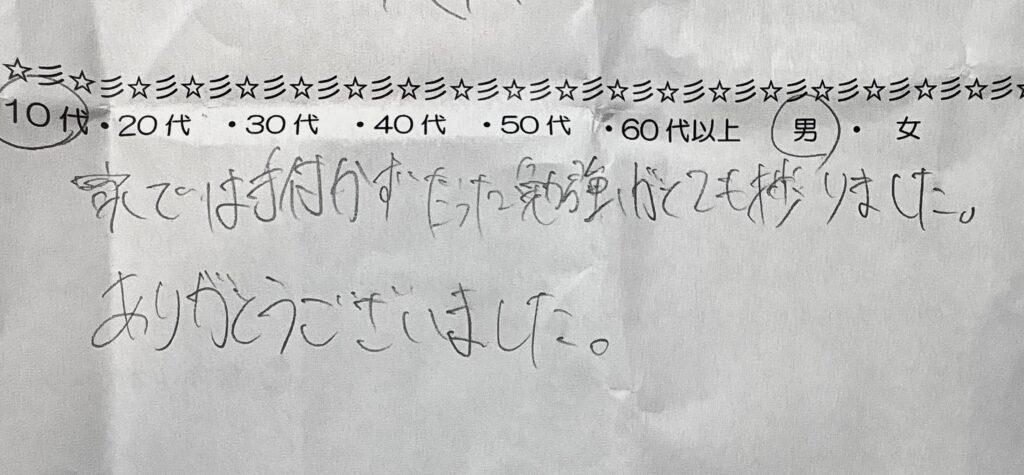 ☆彡☆彡☆彡☆彡☆彡☆彡☆彡☆彡☆彡☆彡☆彡☆彡☆彡☆彡☆彡☆彡☆彡☆彡☆彡☆
10代・20代 ・30代 ・40代 ・50代 ・60代以上 男 ・ 女
家では手付かずだった勉強がとても捗りました。
ありがとうございました。